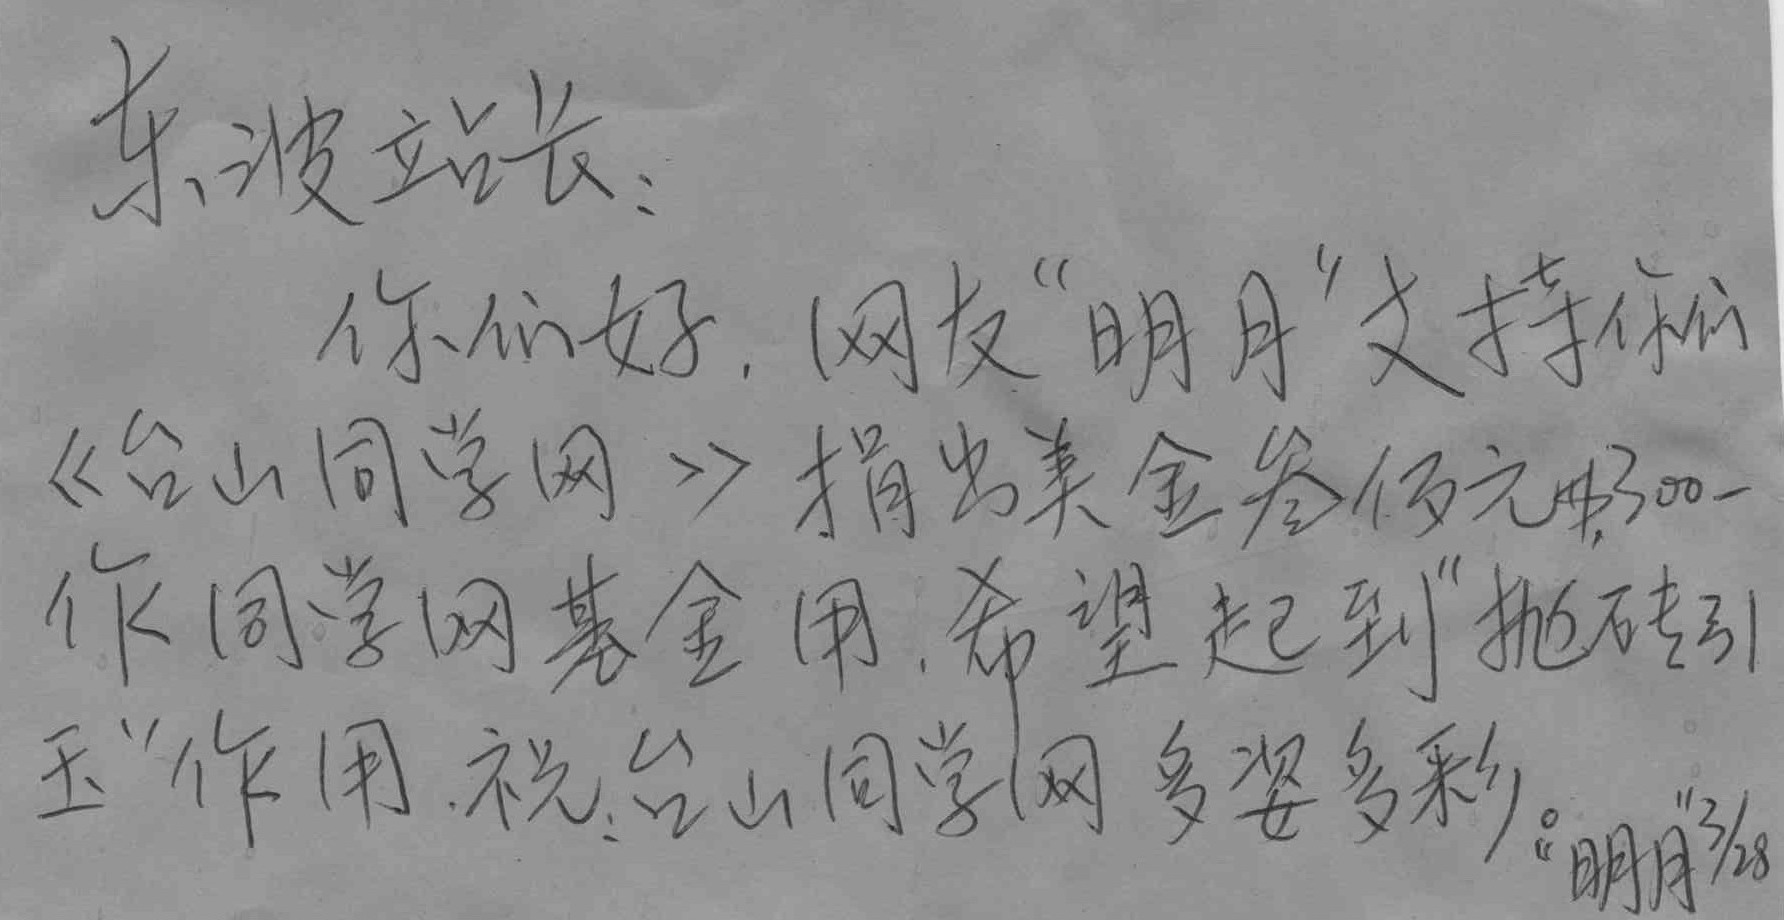 东波站长:
你们好.网友“明月”支持你们
《台山同学网》捐出美金叁佰元$300-
作同学网基金用.希望起到“抛砖引
玉”作用.祝:台山同学网多姿多彩。
“明月”3/28